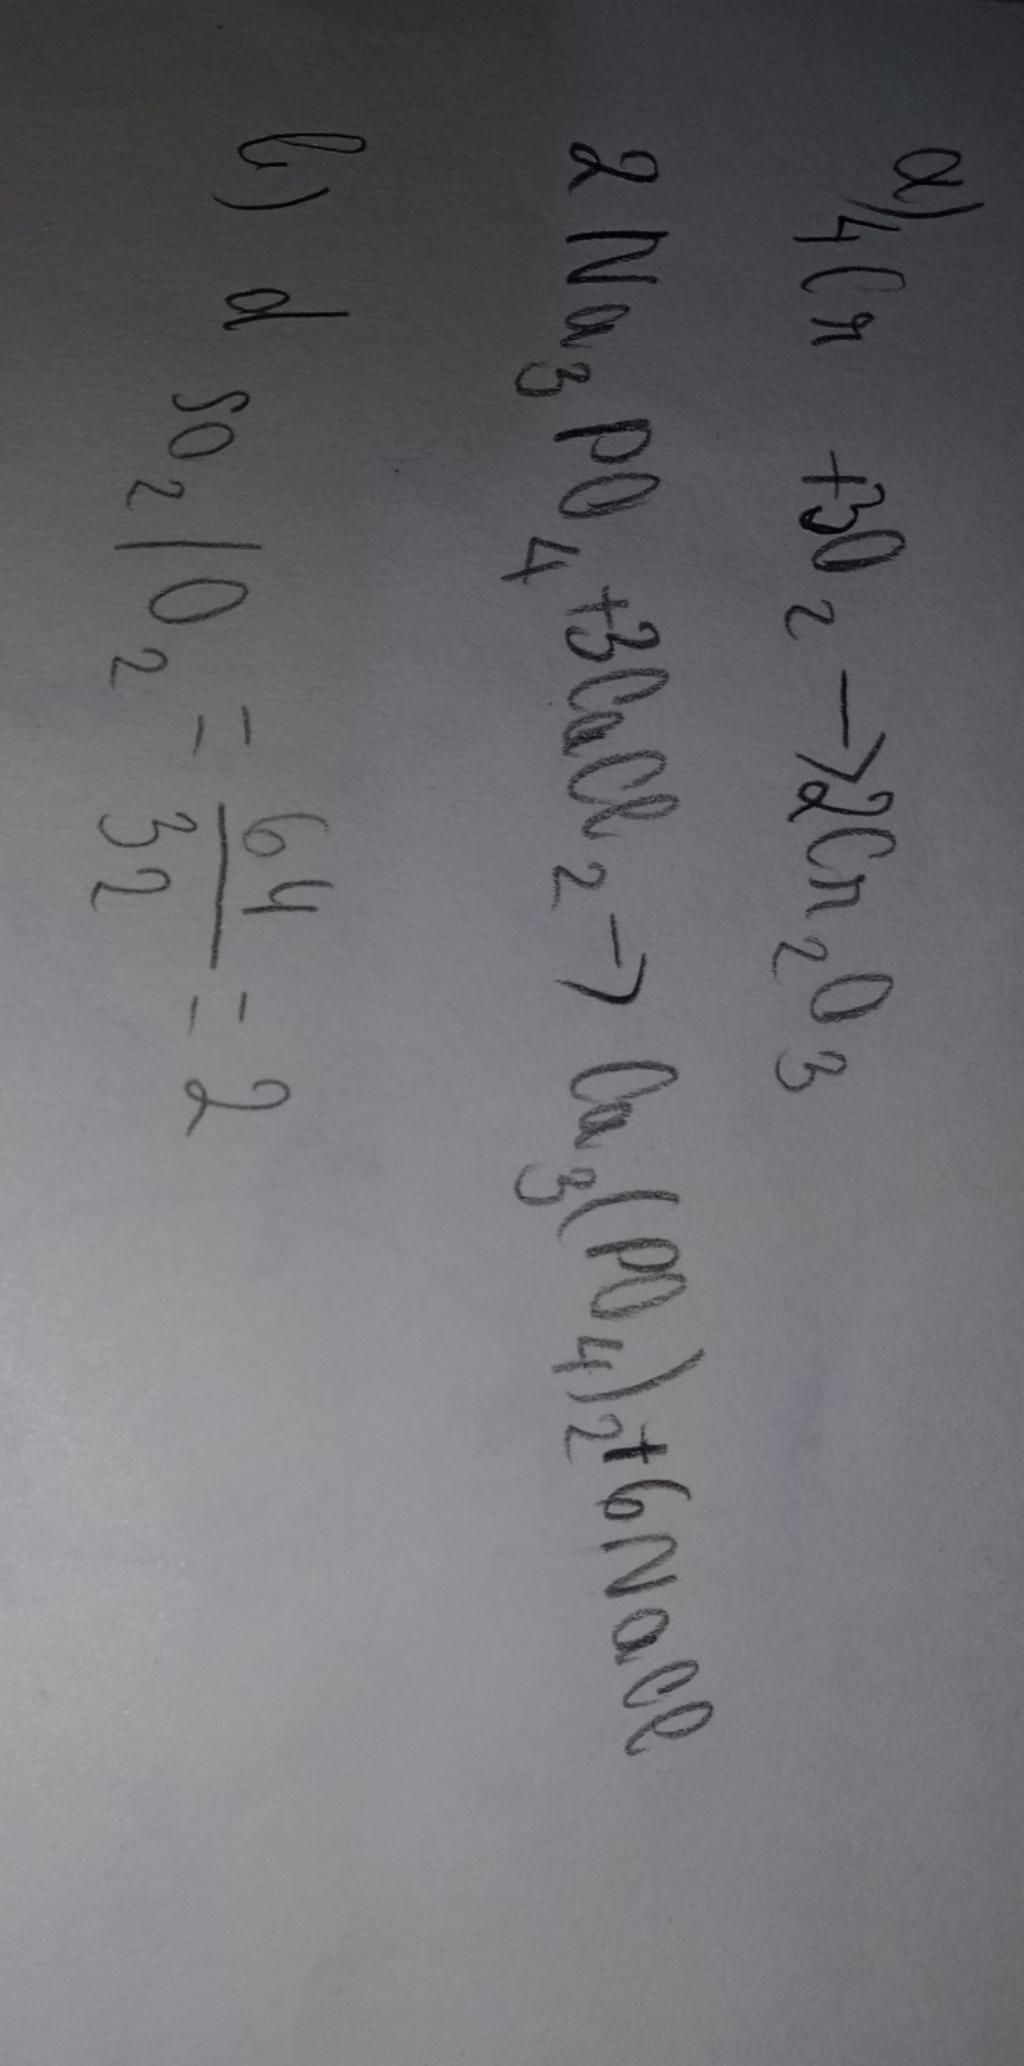 a) 4Cr + 3O₂ → 2Cr₂O₃
2Na₃PO₄ + 3CaCl₂ → Ca₃(PO₄)₂ + 6NaCl
b) d SO₂/O₂ = 64/32 = 2